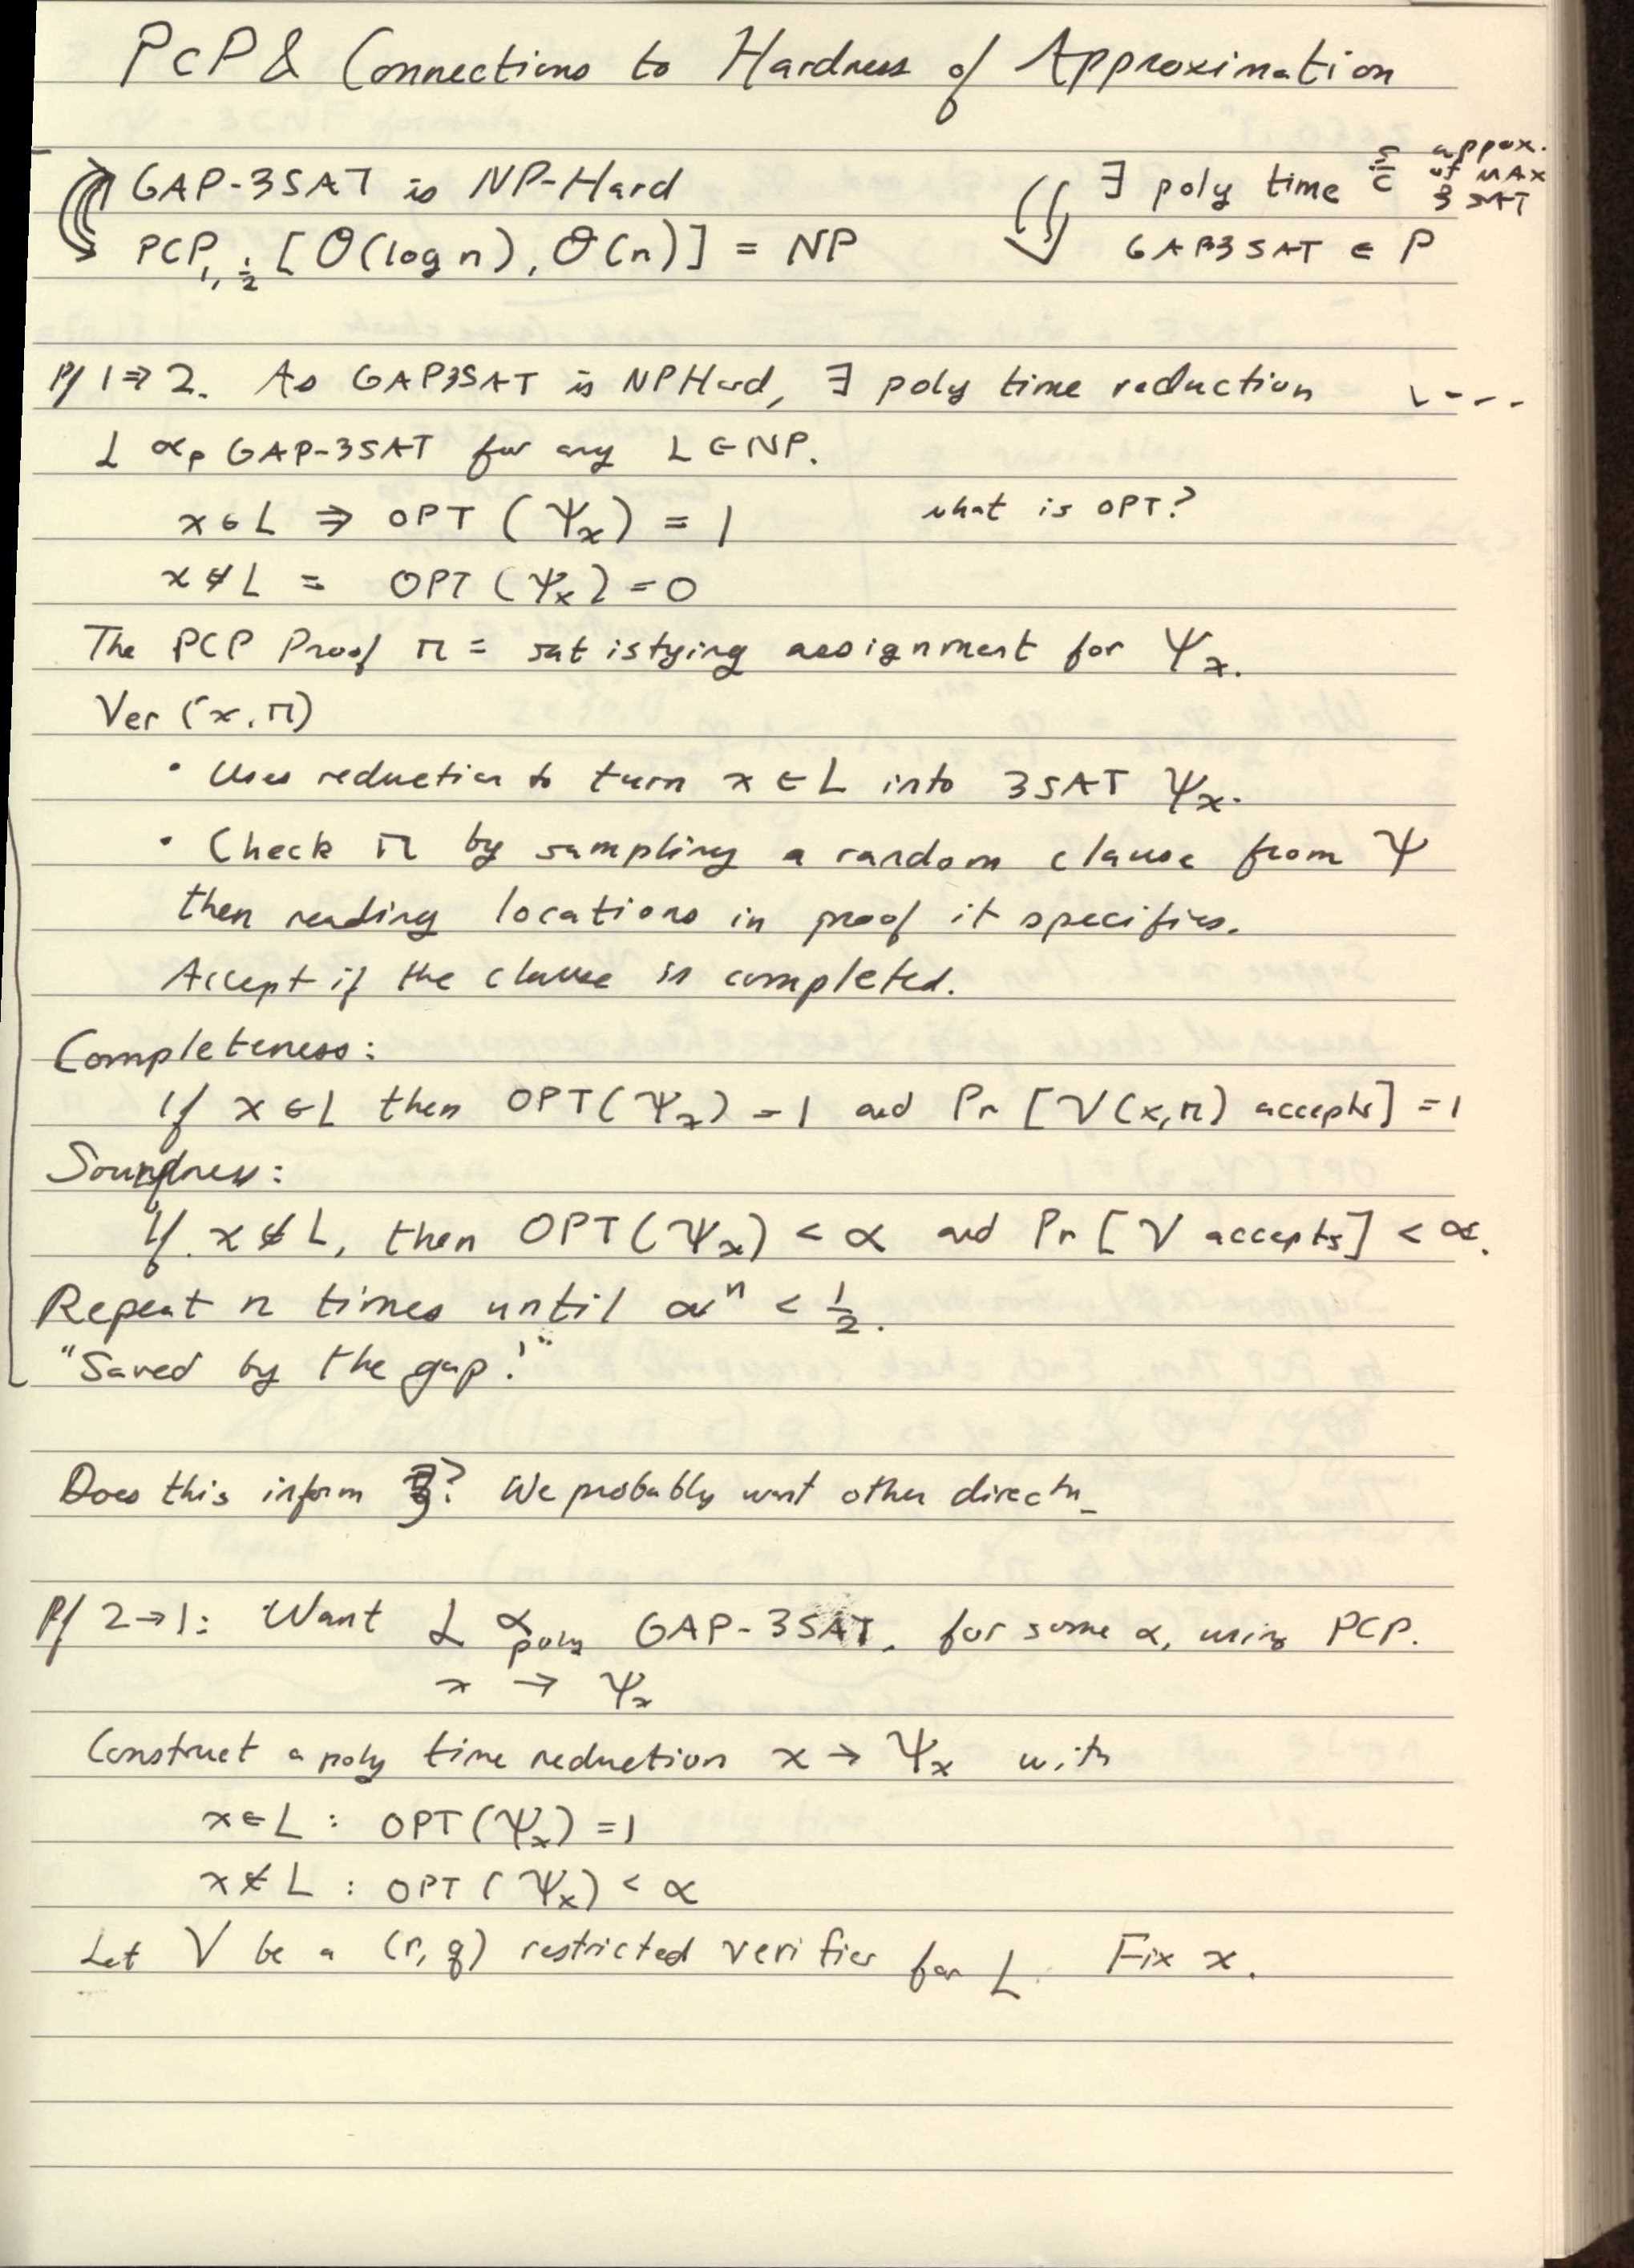 PCP & Connections to Hardness of Approximation
GAP-3SAT is NP-Hard
PCP₁,½ [O(log n), O(n)] = NP
∃ poly time s/c approx. of MAX 3SAT
GAP3SAT ∈ P
Pf 1⇒2. As GAP3SAT is NPHard, ∃ poly time reduction
L ∝p GAP-3SAT for any L ∈ NP.
x ∈ L ⇒ OPT (Ψx) = 1 what is OPT?
x ∉ L = OPT (Ψx) = 0
The PCP Proof π = satistying assignment for Ψx.
Ver (x, π)
• Uses reduction to turn x ∈ L into 3SAT Ψx.
• Check π by sampling a random clause from Ψ
then reading locations in proof it specifies.
Accept if the clause is completed.
Completeness:
If x ∈ L then OPT(Ψx) = 1 and Pr [V(x,π) accepts] = 1
Soundness:
If x ∉ L, then OPT(Ψx) < α and Pr [V accepts] < α.
Repeat n times until αⁿ < ½.
"Saved by the gap!"
Does this inform ? We probably want other
Pf 2→1: Want L ∝poly GAP-3SAT, for some α, using PCP.
x → Ψx
Construct a poly time reduction x → Ψx with
x ∈ L : OPT(Ψx) = 1
x ∉ L : OPT(Ψx) < α
Let V be a (r, q) restricted verifier for L. Fix x.